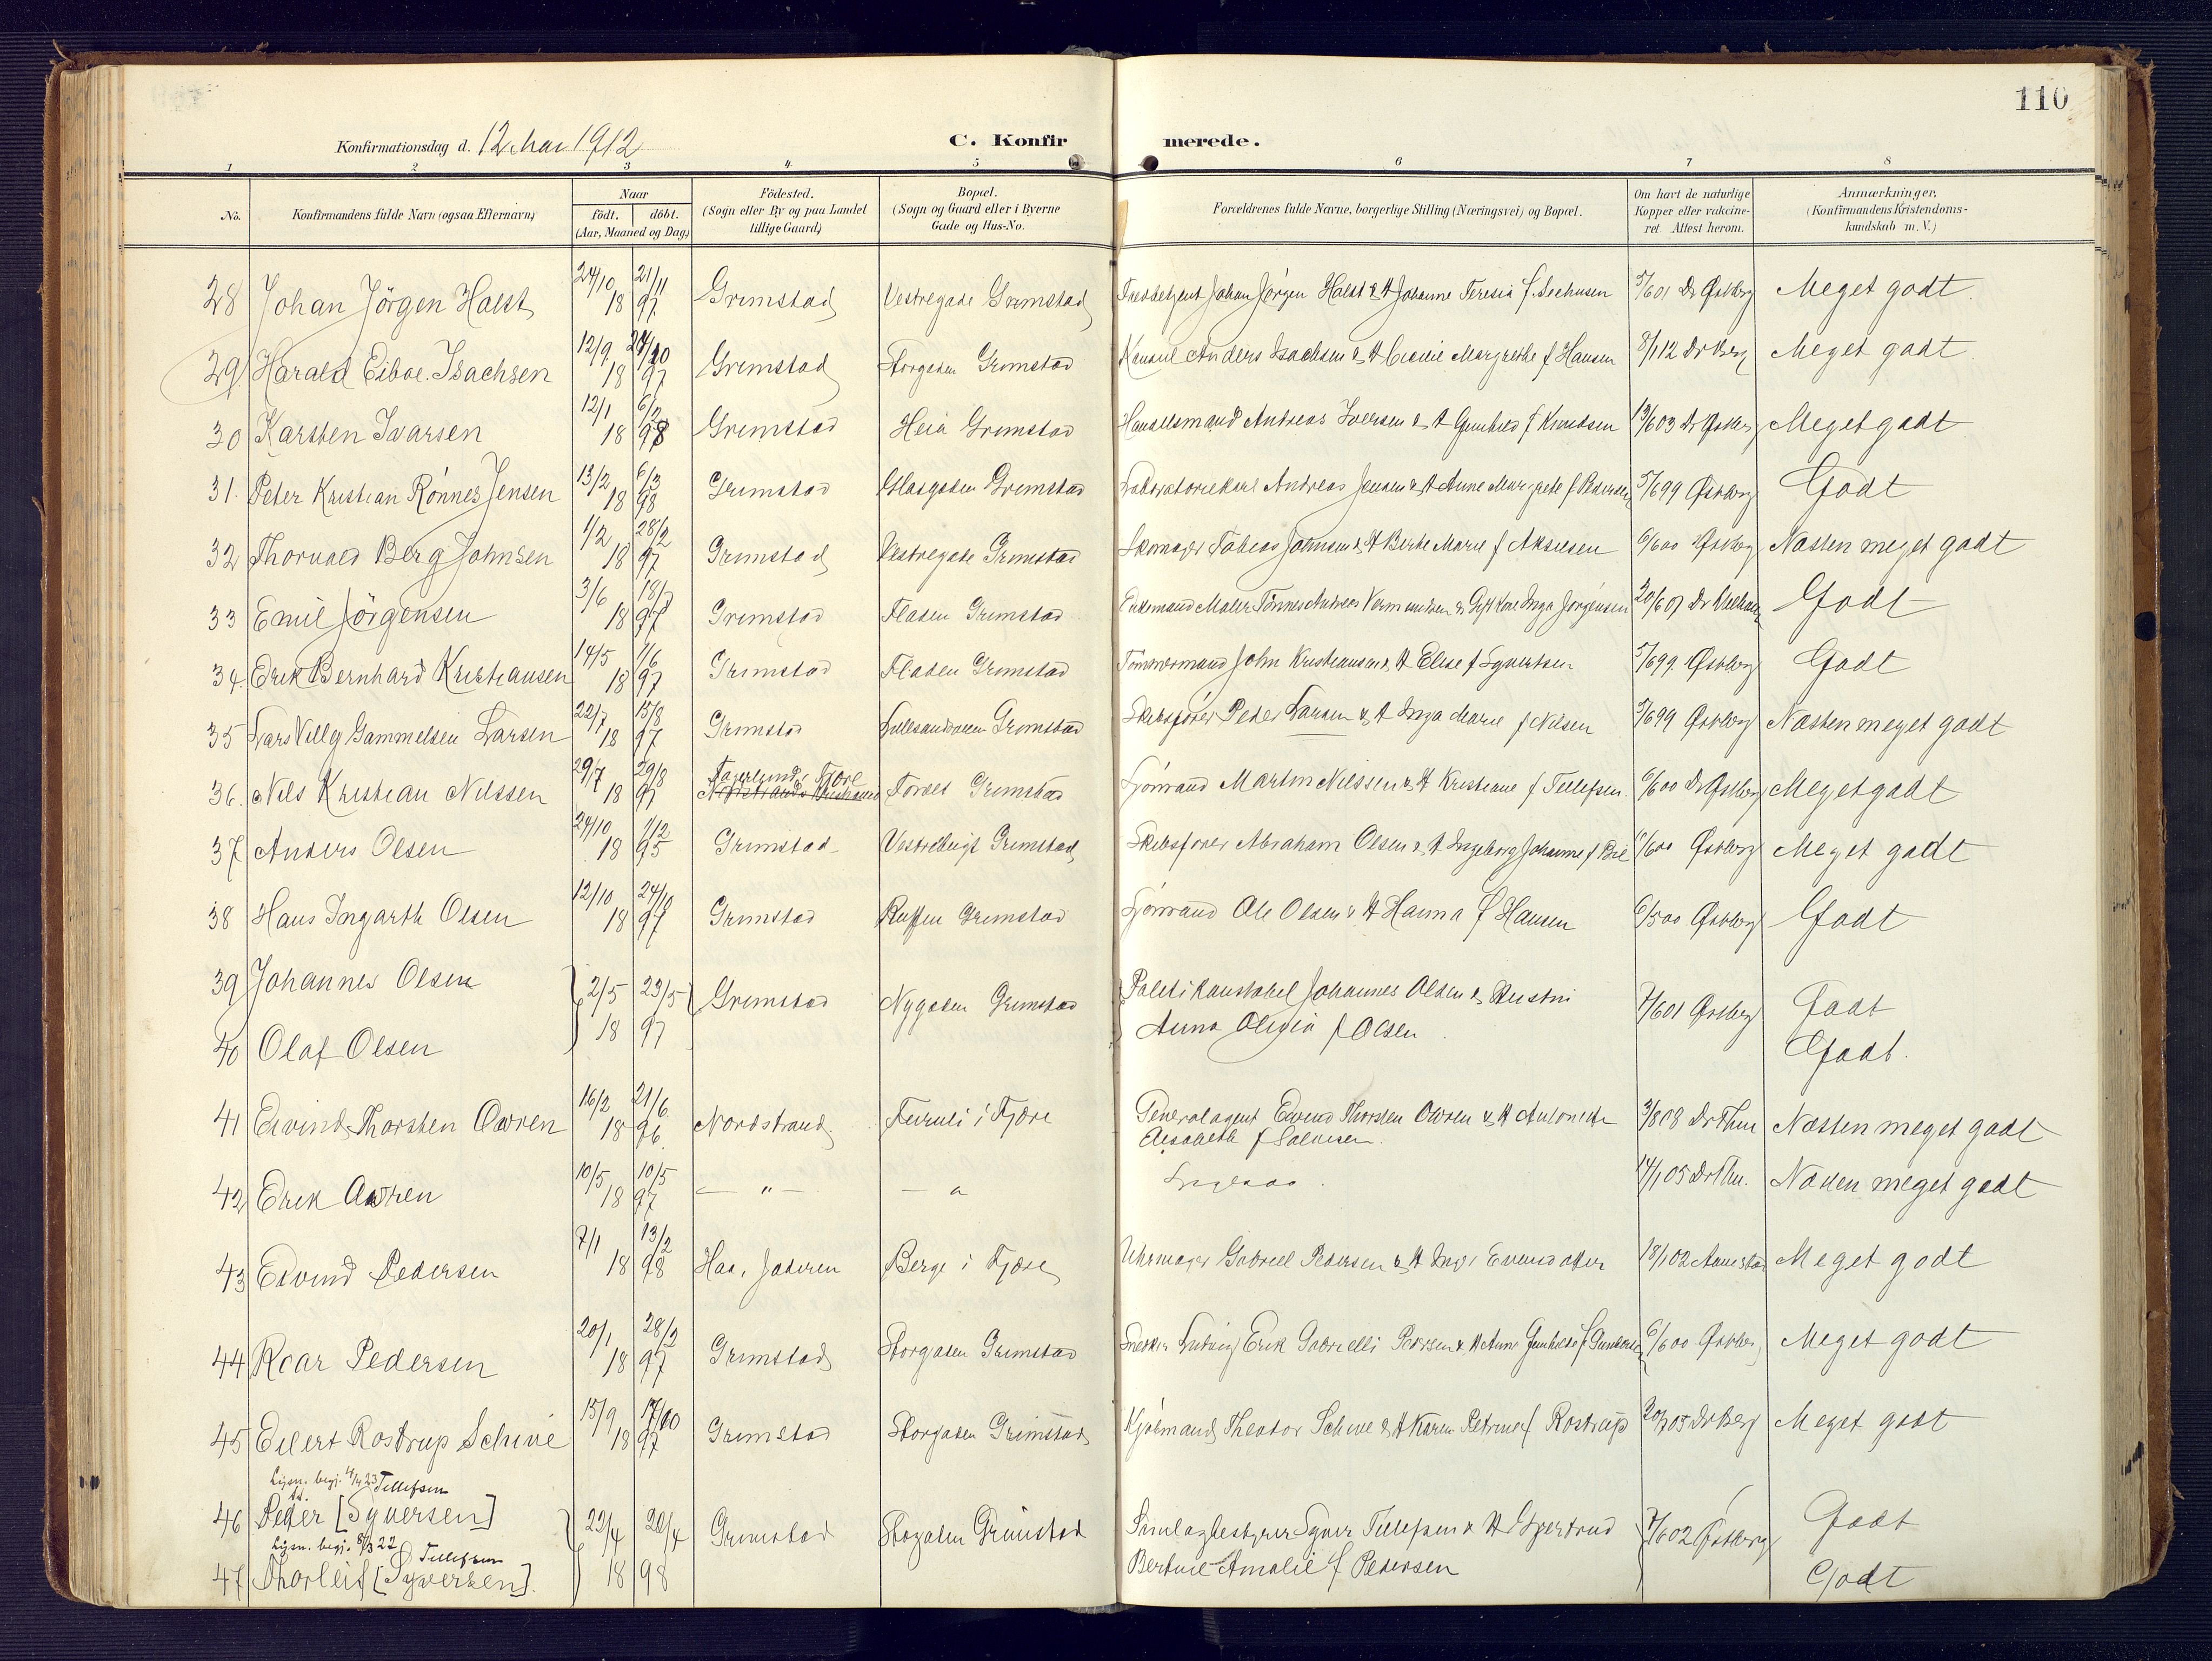 110
Konfirmationsdag d. 12 Mai 1912
C. Konfirmerede.
1 2 3 4 5 6 7 8
No.
Konfirmandens fulde Navn (ogsaa Efternavn)
Naar
födt. döbt.
(Aar, Maaned og Dag)
Födested.
(Sogn eller By og paa Landet
tillige Gaard)
Bopæl.
(Sogn og Gaard eller i Byerne
Gade og Hus-No.
Forældrenes fulde Navne, borgerlige Stilling (Næringsvei) og Bopæl.
Om havt de naturlige
Kopper eller vakcine-
ret. Attest herom.
Anmærkninger.
(Konfirmandens Kristendoms-
kundskab m. V.)
28 Johan Jörgen Holst 24/10 1897 21/11 Grimstad Vestregade Grimstad Johan Jörgen Holst & H Johanne Teresia f. 5/6 01 Dr Østberg Meget godt.
29 Harald Eiboe Isachsen 12/9 1897 Grimstad Storgaden Grimstad Konsul Anders Isachsen & H Margrethe f Hansen 8/1 12 Dr Berg Meget godt
30 Karsten Ivarsen 12/1 1898 6/2 Grimstad Heia Grimstad Handelsmand Andreas Iversen & H Gunhild f Knudsen 13/6 03 Dr Østberg Meget godt
31. Peter Kristian Rönnes Jensen 13/2 1898 6/3 Grimstad Grimstad Andreas Jensen & H Anne Margrete f Pedersen 5/6 99 Østberg Godt
32 Thorvald Berg Johnsen 1/2 1897 28/2 Grimstad Vestregade Grimstad Skomager Tobias Johnsen & H Berte Marie f Akselsen 6/6 00 Østberg Næsten meget godt
33 Emil Jörgensen 3/6 1897 18/7 Grimstad Fladen Grimstad Enkemand Maler Tönnes Andreas & Inga Jörgensen 20/6 07 Dr Godt
34. Erik Bernhard Kristiansen 14/5 1897 Grimstad Fladen Grimstad Tömmermand John Kristiansen & H Elise f Syvertsen 5/6 99 Østberg Godt
35 Lars Gammelsen Larsen 22/7 1897 15/8 Grimstad Grimstad Skibsförer Peder Larsen & H Inga Marie f Nilsen 5/6 99 Østberg Næsten meget godt
36. Nils Kristian Nilssen 29/7 1897 29/8 Fjære Grimstad Sjömand Martin Nilssen & H Kristiane f Tellefsen. 6/6 00 Dr Østberg Meget godt
37 Anders Olsen 24/10 1895 1/12 Grimstad Grimstad Skibsförer Abraham Olsen & H Ingeborg Johanne f 6/6 00 Østberg Meget godt
38 Hans Ingarth Olsen 12/10 1897 24/10 Grimstad Grimstad Sjömand Ole Olsen & H Hanna f Hansen 6/5 00 Østberg Godt
39 Johannes Olsen 2/5 1897 23/5 Grimstad Nygaden Grimstad Politikonstabel Johannes Olsen & Hustru 7/6 01 Østberg Godt
40 Olaf Olsen Anna f Olsen Godt.
41 Eivind Thorsten Owren 16/2 1896 21/6 Nordstrand. Furuli i Fjære Generalagent Eivind Thorsten Owren & H Antonette 3/8 08 Dr Thu Næsten meget godt
42 Erik Owren 10/5 1897 10/5 — " — 14/1 05 Dr Thu. Næsten meget godt
43 Eivind Pedersen 7/1 1898 13/2 Haa, Jæderen Berge i Fjære Uhrmager Gabriel Pedersen & H 18/1 02 Meget godt
44 Roar Pedersen 20/1 1897 28/2 Grimstad Storgaden Grimstad Snekker Ludvig Erik Pedersen & H Anne Gunhild f 6/6 00 Østberg Meget godt
45 Eilert Rostrup Schive 15/9 1897 17/10 Grimstad Storgaden Grimstad Kjøbmand Theodor Schive & H Karen Petrine f Rostrup 20/7 05 Dr Berg Meget godt
Lysn. begj. 4/4 23 Tellefsen
46 Peder [Syversen] 22/4 1898 Grimstad Storgaden Grimstad Syver Tellefsen & H Gjertrud 7/6 02 Østberg Godt
Lysn. begj. 8/3 22 Tellefsen
47 Thorleif [Syversen]. Amalie f Pedersen Godt